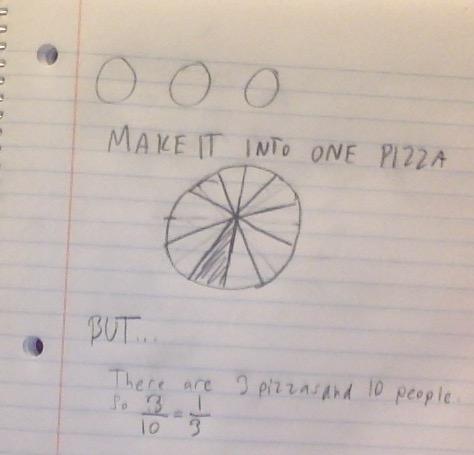 MAKE IT INTO ONE PIZZA
BUT...
There are 3 pizzas and 10 people.
So 3/10 = 1/3